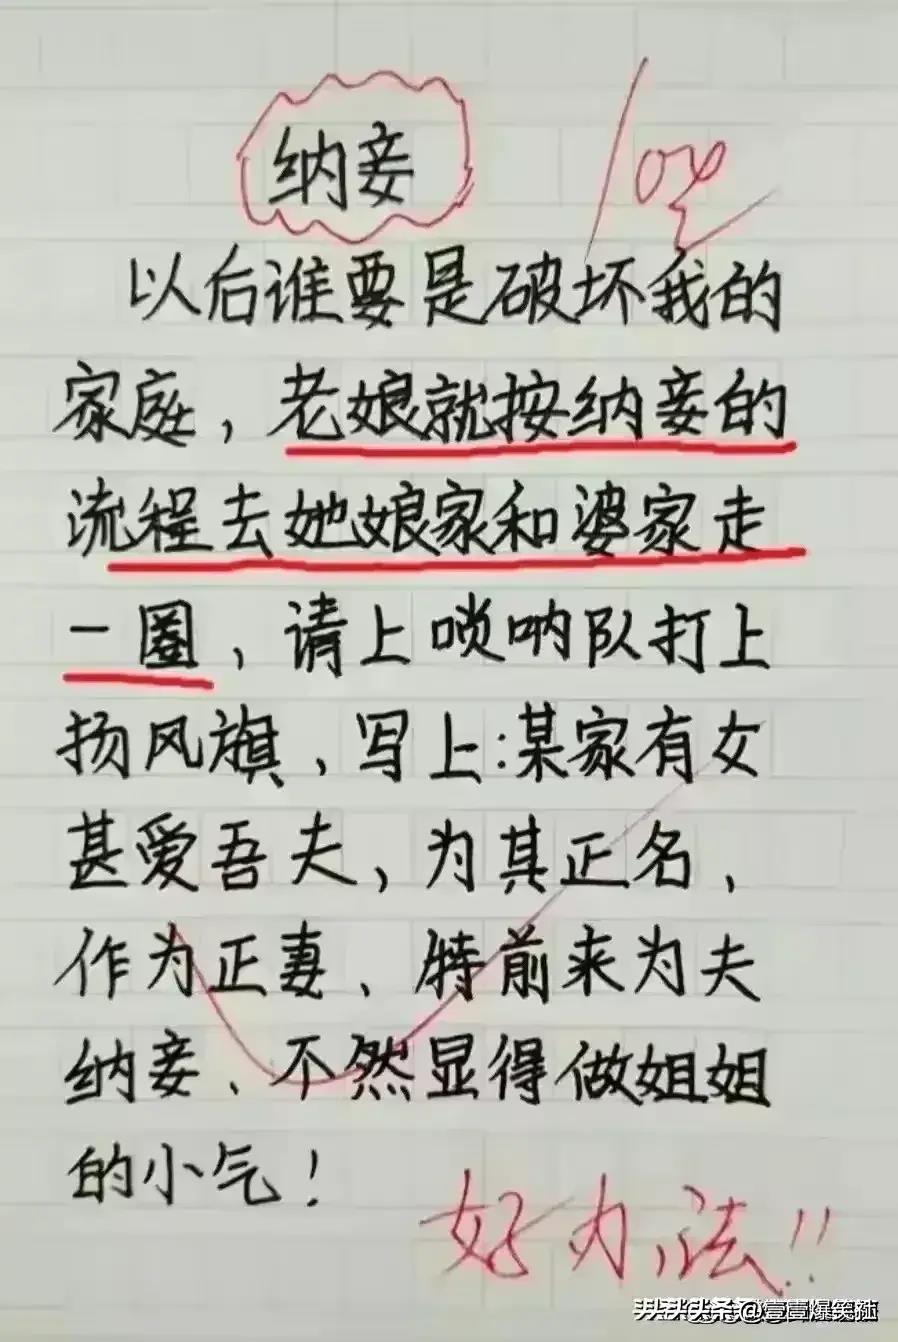 纳妾
100
以后谁要是破坏我的
家庭，老娘就按纳妾的
流程去她娘家和婆家走
一圈，请上唢呐队打上
扬风旗，写上：某家有女
甚爱吾夫，为其正名，
作为正妻、特前来为夫
纳妾、不然显得做姐姐
的小气！
好办法!!
头条 @壹壹爆笑社